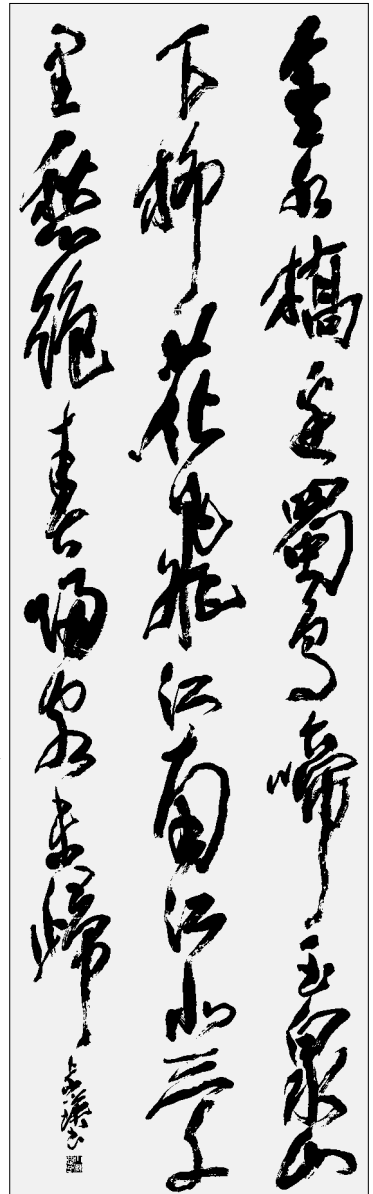 金水橋邊蜀鳥啼玉泉山
下柳花飛江南江北三千
里愁絕春歸客未歸